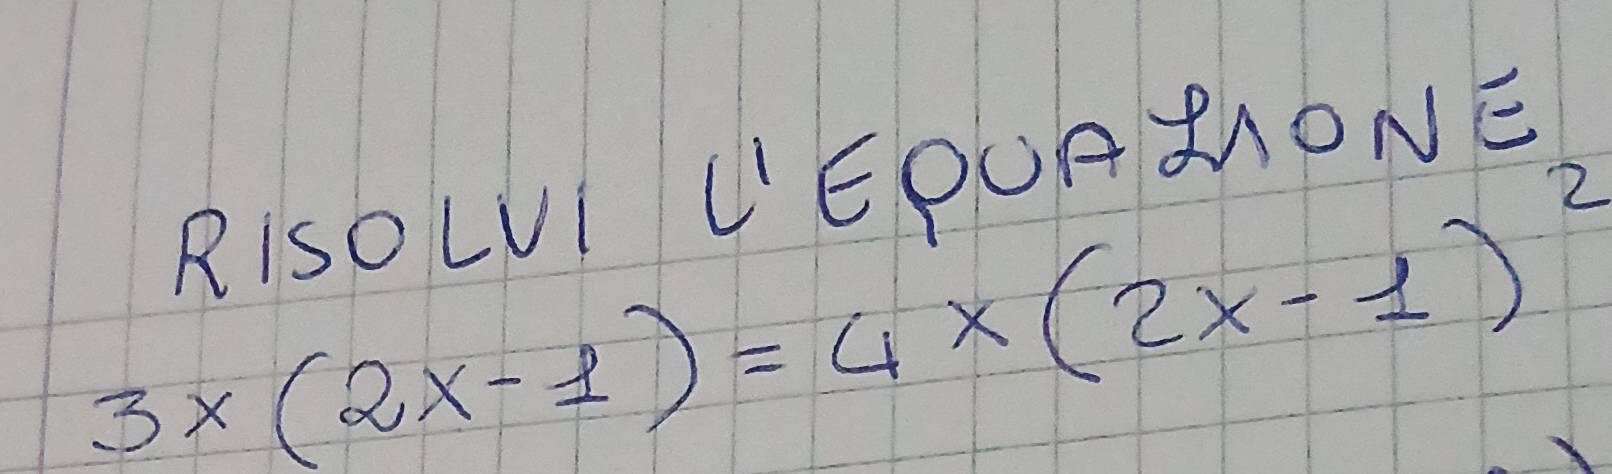 RISOLVI L'EQUAZIONE
3x(2x-1)=4x(2x-1)²